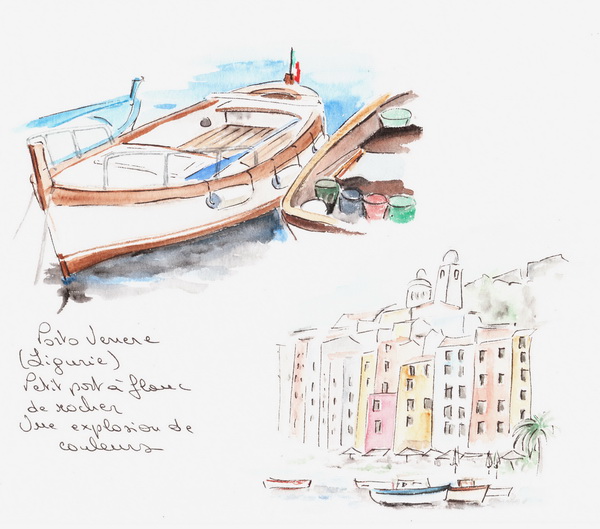 Porto Venere
(Ligurie)
Petit port à flanc
de rocher
Une explosion de
couleurs